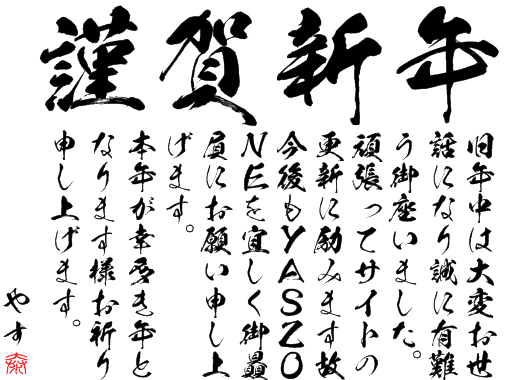 謹賀新年
旧年中は大変お世
話になり誠に有難
う御座いました。
頑張ってサイトの
更新に励みます故
今後もYASZO
NEを宜しく御贔
屓にお願い申し上
げます。
本年が幸多き年と
なります様お祈り
申し上げます。
やす